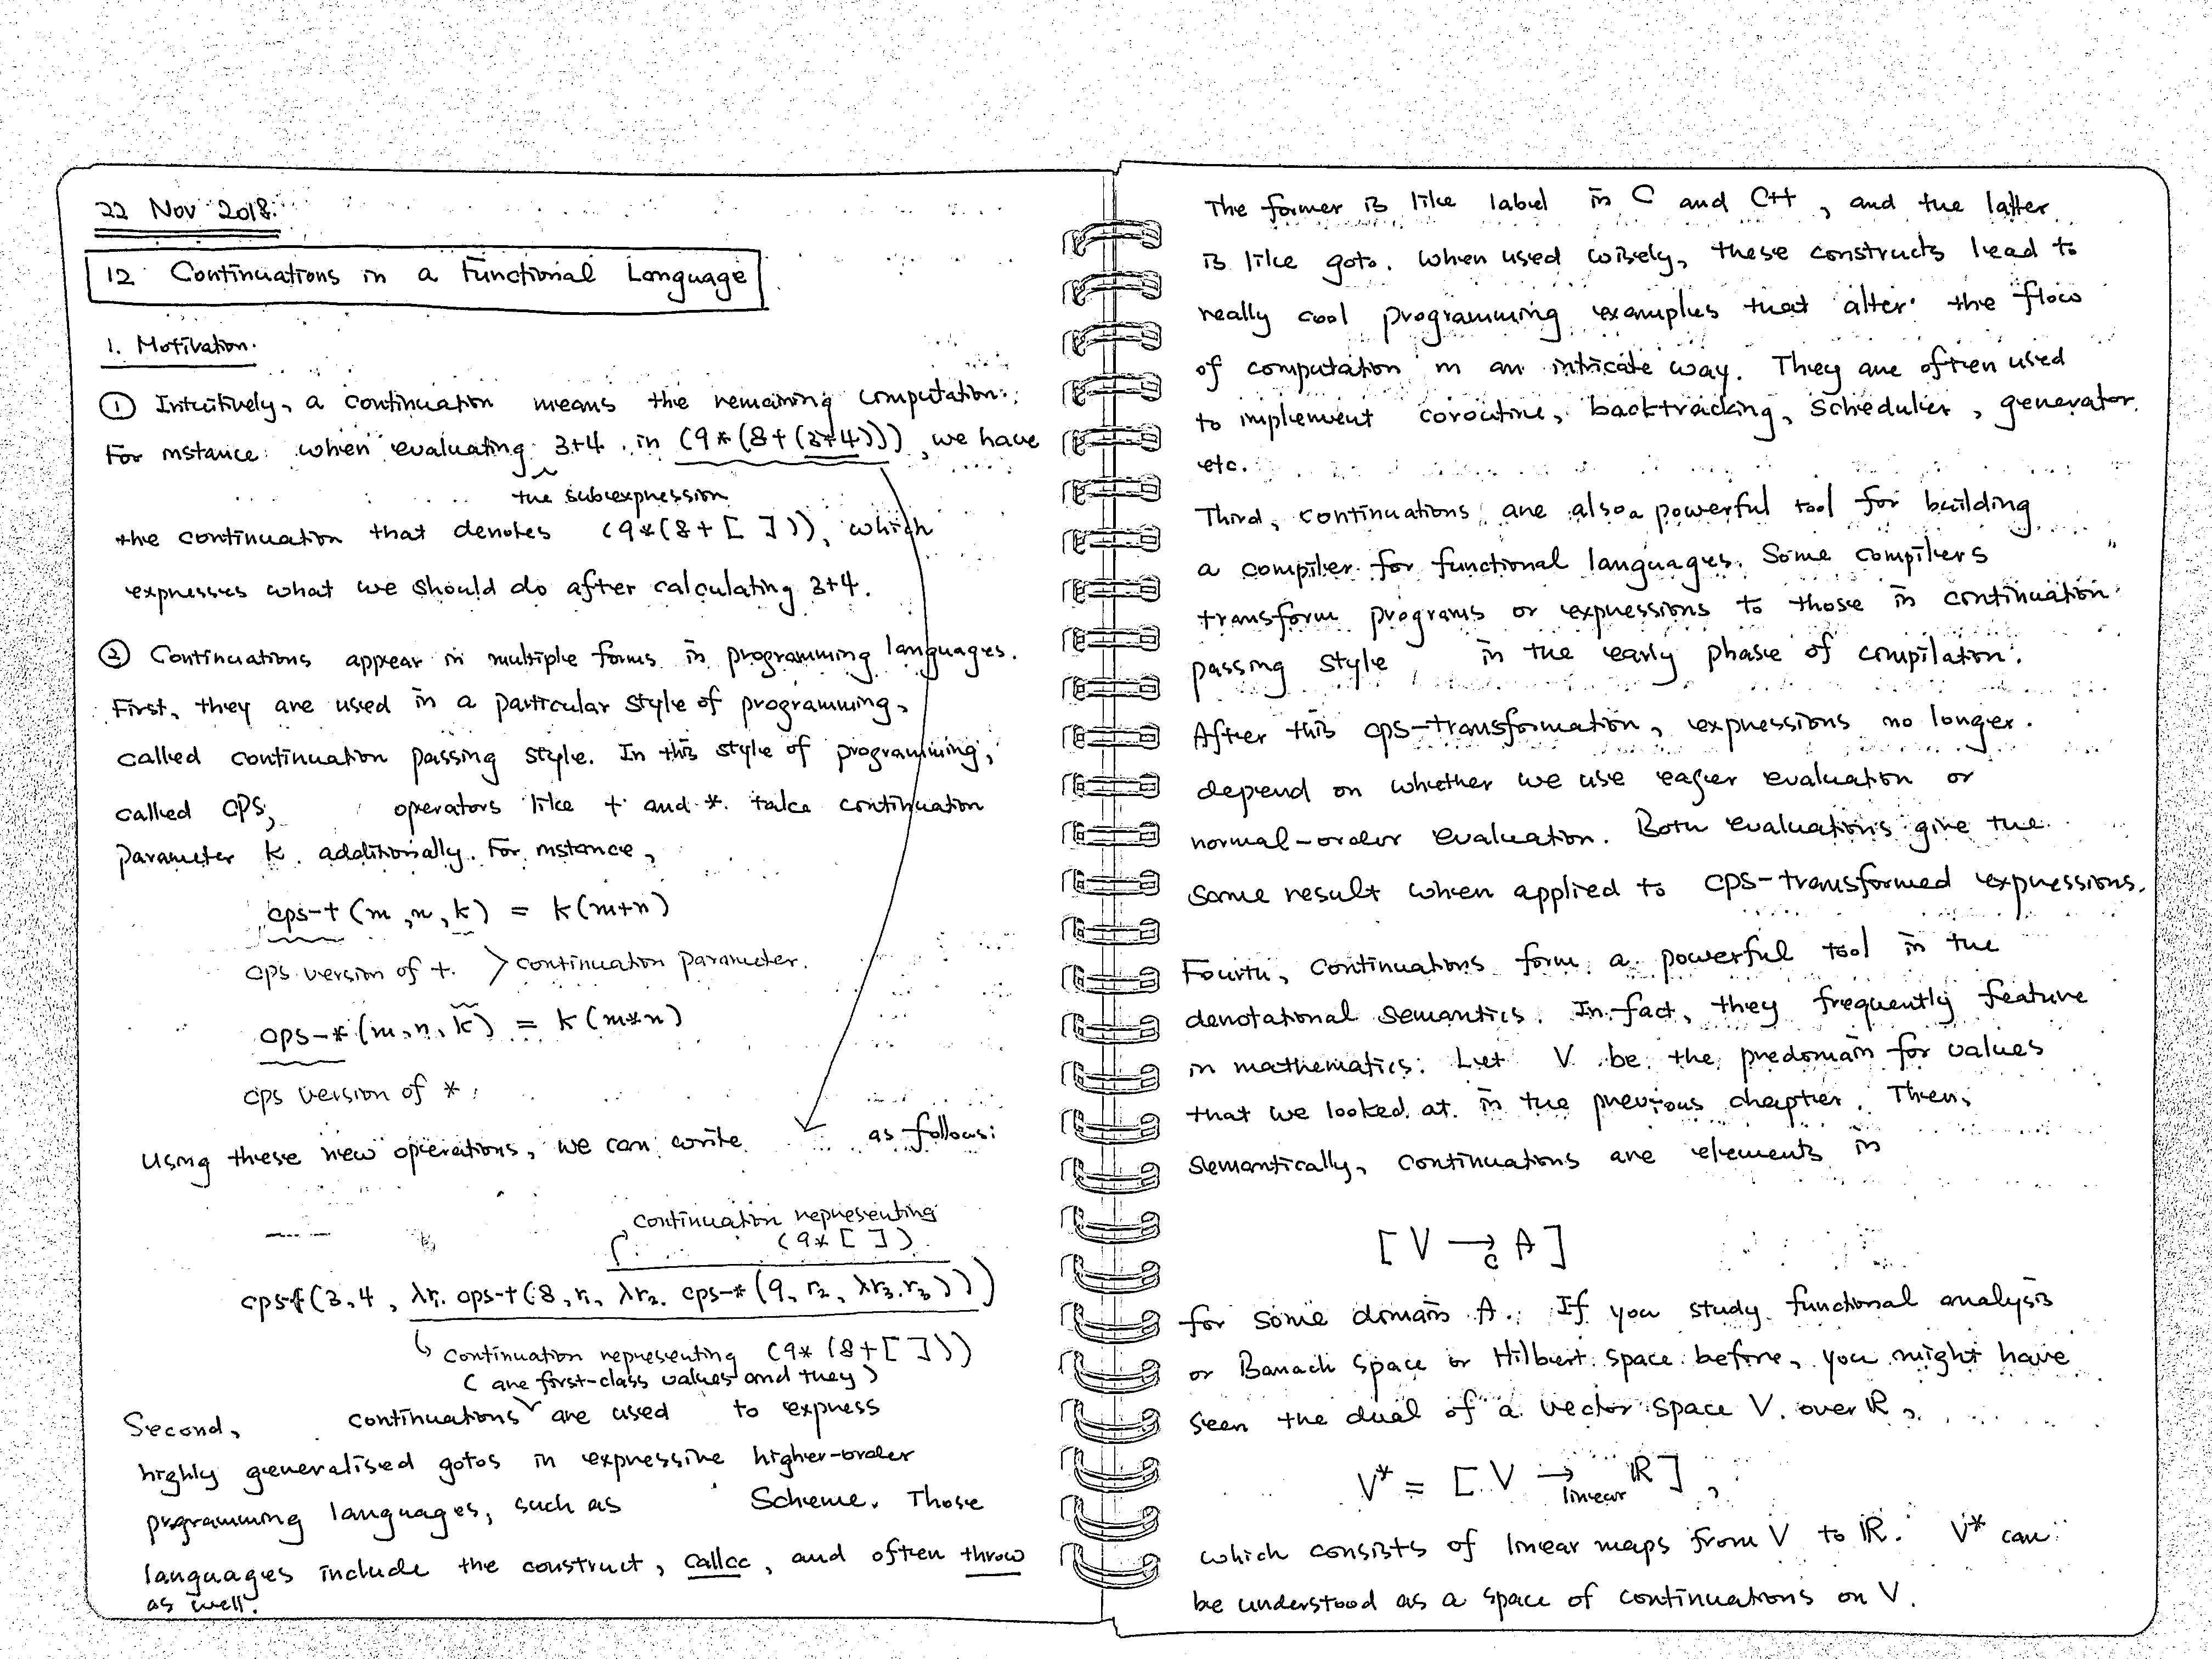 22 Nov 2018.
12. Continuations in a Functional Language
1. Motivation.
① Intuitively, a continuation means the remaining computation.
For instance when evaluating 3+4 in (9*(8+(3+4))), we have
the subexpression
the continuation that denotes (9*(8+[ ])), which
expresses what we should do after calculating 3+4.
② Continuations appear in multiple forms in programming languages.
First, they are used in a particular style of programming,
called continuation passing style. In this style of programming,
called CPS, operators like + and * take continuation
parameter k additionally. For instance,
cps-+(m,n,k) = k(m+n)
cps version of +. continuation parameter.
cps-*(m,n,k) = k(m*n)
cps version of *.
Using these new operations, we can write as follows:
continuation representing
(9*[ ])
cps-+(3,4, λr₁. cps-+(8,r₁, λr₂. cps-*(9,r₂, λr₃.r₃)))
continuation representing (9*(8+[ ]))
( are first-class values and they )
Second, continuations are used to express
highly generalised gotos in expressive higher-order
programming languages, such as Scheme. Those
languages include the construct, callcc, and often throw
as well.
The former is like label in C and C++, and the latter
is like goto. When used wisely, these constructs lead to
really cool programming examples that alter the flow
of computation in an intricate way. They are often used
to implement coroutine, backtracking, scheduler, generator,
etc.
Third, continuations are also a powerful tool for building
a compiler for functional languages. Some compilers
transform programs or expressions to those in continuation
passing style in the early phase of compilation.
After this cps-transformation, expressions no longer
depend on whether we use eager evaluation or
normal-order evaluation. Both evaluations give the
same result when applied to cps-transformed expressions.
Fourth, continuations form a powerful tool in the
denotational semantics. In fact, they frequently feature
in mathematics. Let V be the predomain for values
that we looked at in the previous chapter. Then,
semantically, continuations are elements in
[V →c A]
for some domain A. If you study functional analysis
or Banach space or Hilbert space before, you might have
seen the dual of a vector space V over ℝ,
V* = [V →linear ℝ],
which consists of linear maps from V to ℝ. V* can
be understood as a space of continuations on V.